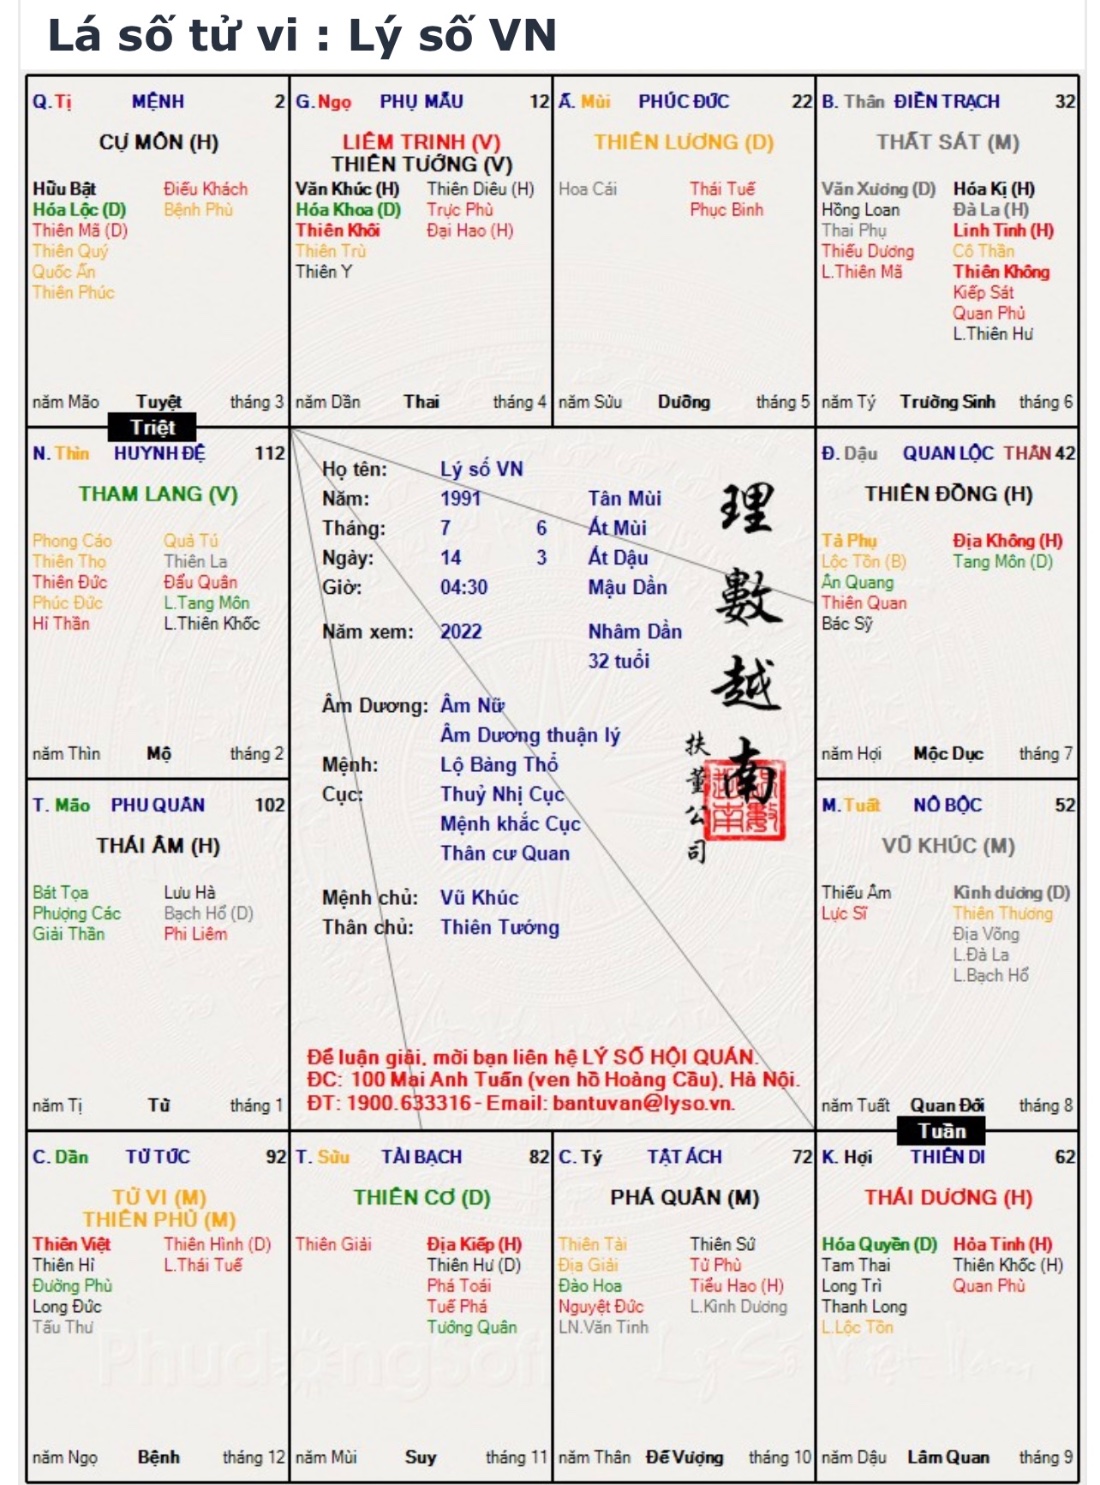 Lá số tử vi : Lý số VN
Q.Tị MỆNH 2
CỰ MÔN (H)
Hữu Bật Điếu Khách
Hóa Lộc (D) Bệnh Phù
Thiên Mã (D)
Thiên Quý
Quốc Ấn
Thiên Phúc
năm Mão Tuyệt tháng 3
G.Ngọ PHỤ MẪU 12
LIÊM TRINH (V)
THIÊN TƯỚNG (V)
Văn Khúc (H) Thiên Diêu (H)
Hóa Khoa (D) Trực Phù
Thiên Khôi Đại Hao (H)
Thiên Trù
Thiên Y
năm Dần Thai tháng 4
Ấ. Mùi PHÚC ĐỨC 22
THIÊN LƯƠNG (D)
Hoa Cái Thái Tuế
Phục Binh
năm Sửu Dưỡng tháng 5
B. Thân ĐIỀN TRẠCH 32
THẤT SÁT (M)
Văn Xương (D) Hóa Kị (H)
Hồng Loan Đà La (H)
Thai Phụ Linh Tinh (H)
Thiếu Dương Cô Thần
L.Thiên Mã Thiên Không
Kiếp Sát
Quan Phủ
L.Thiên Hư
năm Tý Trường Sinh tháng 6
Triệt
N. Thìn HUYNH ĐỆ 112
THAM LANG (V)
Phong Cáo Quả Tú
Thiên Thọ Thiên La
Thiên Đức Đẩu Quân
Phúc Đức L.Tang Môn
Hỉ Thần L.Thiên Khốc
năm Thìn Mộ tháng 2
Họ tên: Lý số VN
Năm: 1991 Tân Mùi
Tháng: 7 6 Ất Mùi
Ngày: 14 3 Ất Dậu
Giờ: 04:30 Mậu Dần
Năm xem: 2022 Nhâm Dần
32 tuổi
Âm Dương: Âm Nữ
Âm Dương thuận lý
Mệnh: Lộ Bàng Thổ
Cục: Thuỷ Nhị Cục
Mệnh khắc Cục
Thân cư Quan
Mệnh chủ: Vũ Khúc
Thân chủ: Thiên Tướng
理
數
越
南
扶
董
公
司
Để luận giải, mời bạn liên hệ LÝ SỐ HỘI QUÁN.
ĐC: 100 Mai Anh Tuấn (ven hồ Hoàng Cầu), Hà Nội.
ĐT: 1900.633316 - Email: bantuvan@lyso.vn.
Đ. Dậu QUAN LỘC THÂN 42
THIÊN ĐỒNG (H)
Tả Phụ Địa Không (H)
Lộc Tồn (B) Tang Môn (D)
Ân Quang
Thiên Quan
Bác Sỹ
năm Hợi Mộc Dục tháng 7
T. Mão PHU QUÂN 102
THÁI ÂM (H)
Bát Tọa Lưu Hà
Phượng Các Bạch Hổ (D)
Giải Thần Phi Liêm
năm Tị Tử tháng 1
M.Tuất NÔ BỘC 52
VŨ KHÚC (M)
Thiếu Âm Kình dương (D)
Lực Sĩ Thiên Thương
Địa Võng
L.Đà La
L.Bạch Hổ
năm Tuất Quan Đới tháng 8
Tuần
C. Dần TỬ TỨC 92
TỬ VI (M)
THIÊN PHỦ (M)
Thiên Việt Thiên Hình (D)
Thiên Hỉ L.Thái Tuế
Đường Phù
Long Đức
Tấu Thư
năm Ngọ Bệnh tháng 12
T. Sửu TÀI BẠCH 82
THIÊN CƠ (D)
Thiên Giải Địa Kiếp (H)
Thiên Hư (D)
Phá Toái
Tuế Phá
Tướng Quân
năm Mùi Suy tháng 11
C. Tý TẬT ÁCH 72
PHÁ QUÂN (M)
Thiên Tài Thiên Sứ
Địa Giải Tử Phù
Đào Hoa Tiểu Hao (H)
Nguyệt Đức L.Kình Dương
LN.Văn Tinh
năm Thân Đế Vượng tháng 10
K. Hợi THIÊN DI 62
THÁI DƯƠNG (H)
Hóa Quyền (D) Hỏa Tinh (H)
Tam Thai Thiên Khốc (H)
Long Trì Quan Phù
Thanh Long
L.Lộc Tồn
năm Dậu Lâm Quan tháng 9